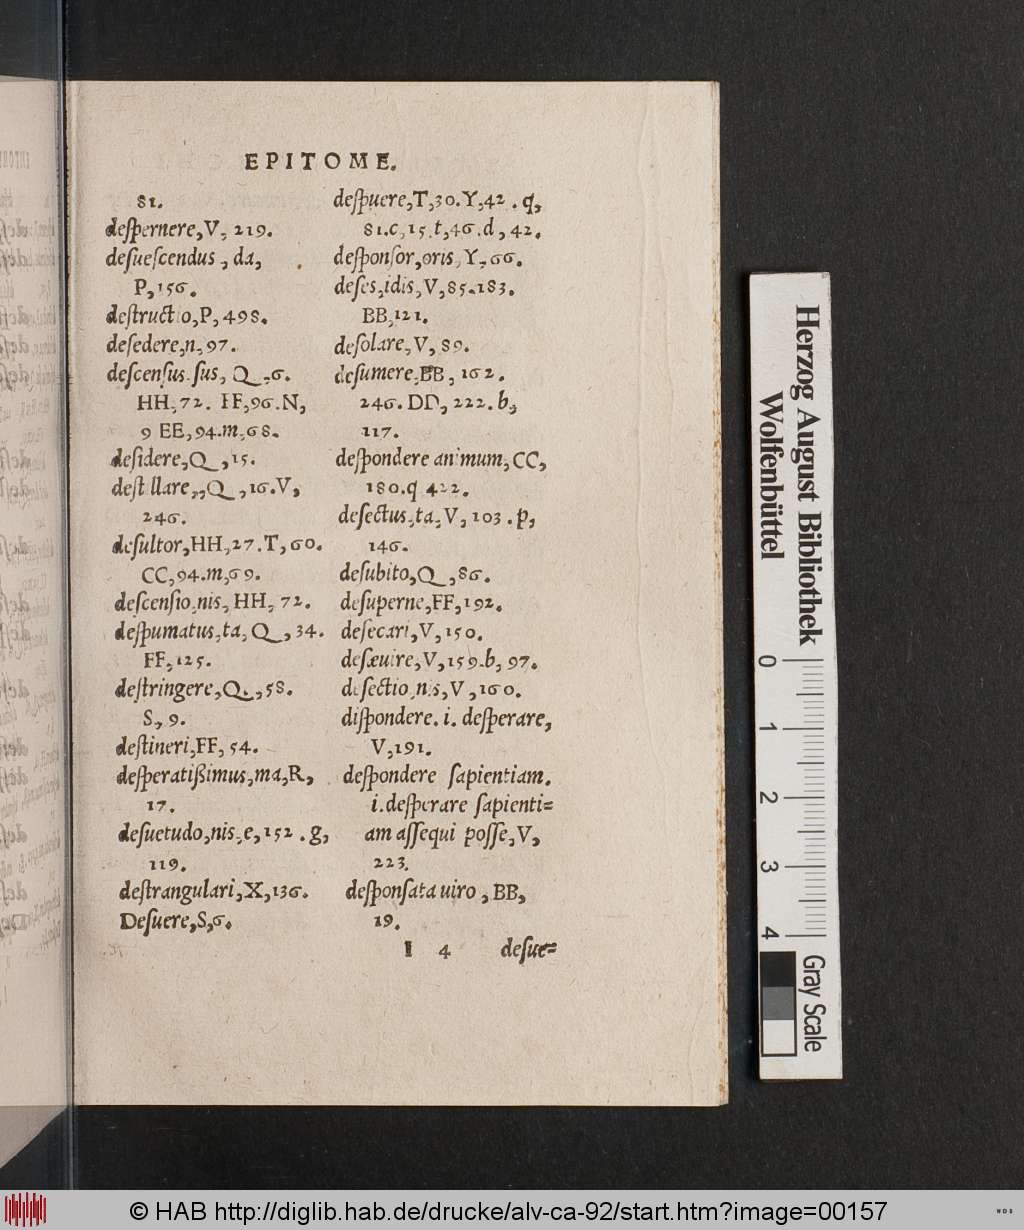 EPITOME.
81.
despernere, V, 219.
desuescendus, da,
P, 156.
destructio, P, 498.
desedere, n, 97.
descensus.sus, Q, 6.
HH, 72. FF, 96. N,
9 EE, 94. m, 68.
desidere, Q, 15.
destillare,, Q, 16. V,
246.
desultor, HH, 27. T, 60.
CC, 94. m, 69.
descensio, nis, HH, 72.
despumatus, ta, Q, 34.
FF, 125.
destringere, Q., 58.
S, 9.
destineri, FF, 54.
desperatißimus, ma, R,
17.
desuetudo, nis, e, 152. g,
119.
destrangulari, X, 136.
Desuere, S, 6.
despuere, T, 30. Y, 42. q,
81. c, 15. t, 46. d, 42.
desponsor, oris, Y, 66.
deses, idis, V, 85. 183.
BB, 121.
desolare, V, 89.
desumere, BB, 162.
246. DD, 222. b,
117.
despondere animum, CC,
180. q 422.
desectus, ta, V, 103. p,
146.
desubito, Q, 86.
desuperne, FF, 192.
desecari, V, 150.
desæuire, V, 159. b, 97.
desectio, nis, V, 160.
dispondere. i. desperare,
V, 191.
despondere sapientiam.
i. desperare sapienti=
am assequi posse, V,
223.
desponsata uiro, BB,
19.
I 4 desue=
Herzog August Bibliothek
Wolfenbüttel
0 1 2 3 4
Gray Scale
© HAB http://diglib.hab.de/drucke/alv-ca-92/start.htm?image=00157